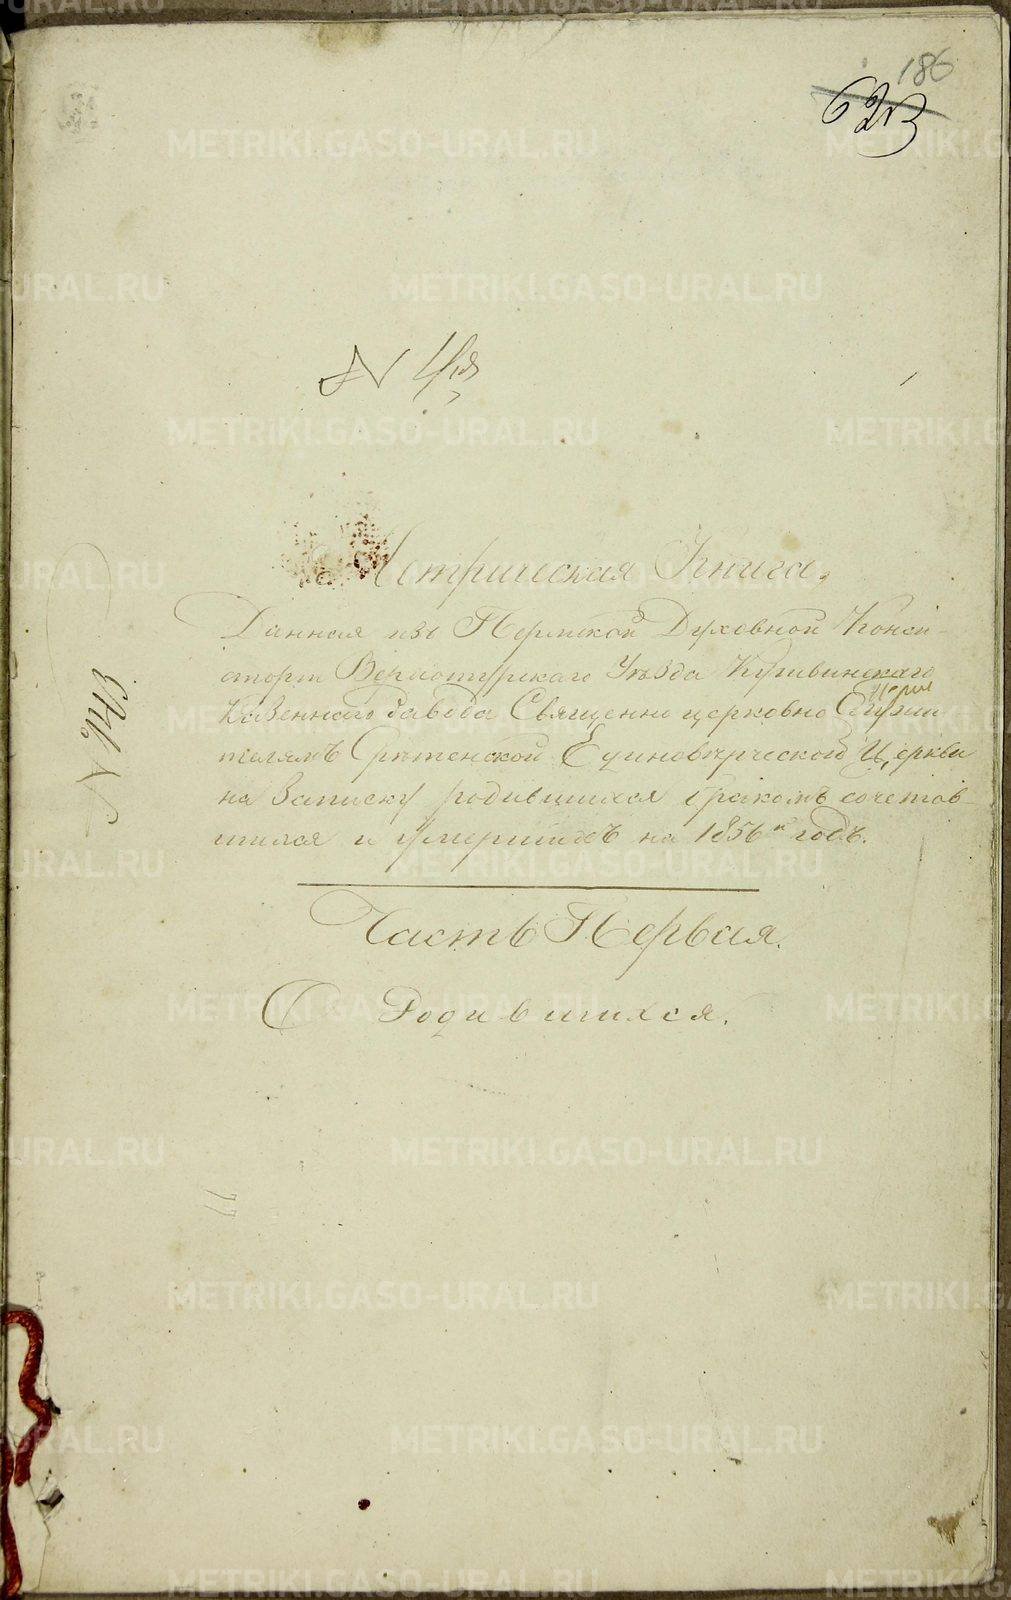 186
N 4й
Метрическая Книга,
Данная изъ Пермской Духовной Конси-
сторіи Верхотурскаго Уѣзда Кушвинскаго
Казеннаго Завода Священно церковно Служи
телямъ Срѣтенской Единовѣрческой Церкви
на Записку родившихся бракомъ сочетав-
шихся и умершихъ на 1856й годъ.
Часть Первая.
О Родившихся.
METRIKI.GASO-URAL.RU